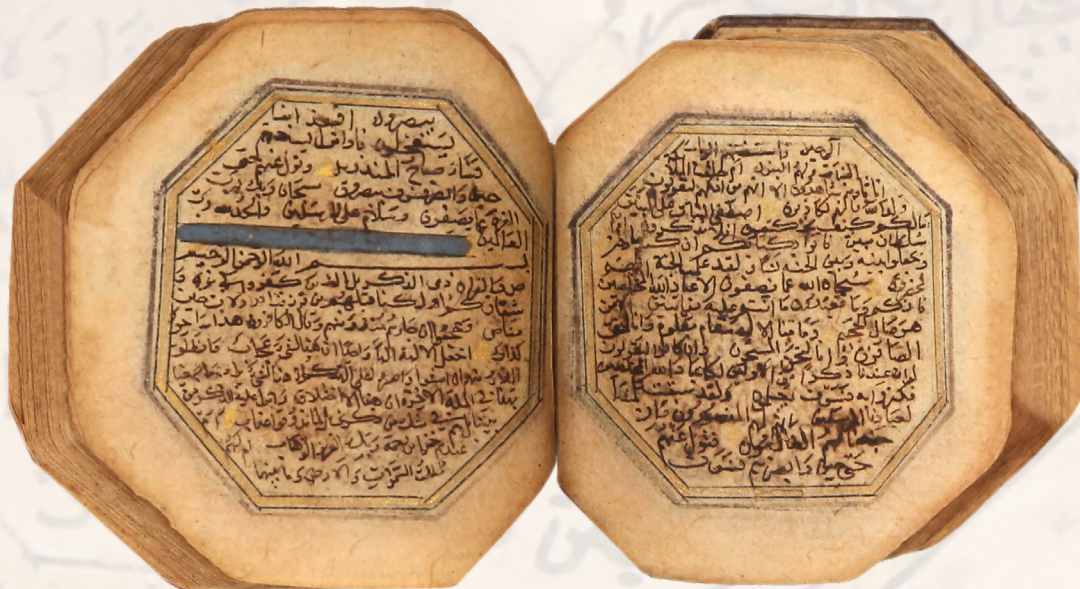 البنات ولهم البنون ام خلقنا الملائكة
اناثا وهم شاهدون الا انهم من افكهم ليقولون
ولد الله وانهم لكاذبون اصطفى البنات على البنين
مالكم كيف تحكمون افلا تذكرون ام لكم
سلطان مبين فاتوا بكتابكم ان كنتم صادقين
وجعلوا بينه وبين الجنة نسبا ولقد علمت الجنة انهم
لمحضرون سبحان الله عما يصفون الا عباد الله المخلصين
فانكم وما تعبدون ما انتم عليه بفاتنين الا من
هو صال الجحيم وما منا الا له مقام معلوم وانا لنحن
الصافون وانا لنحن المسبحون وان كانوا ليقولون
لو ان عندنا ذكرا من الاولين لكنا عباد الله المخلصين
فكفروا به فسوف يعلمون ولقد سبقت كلمتنا
لعبادنا المرسلين انهم لهم المنصورون وان
جندنا لهم الغالبون فتول عنهم
حتى حين وابصرهم فسوف
يبصرون افبعذابنا
يستعجلون فاذا نزل بساحتهم
فساء صباح المنذرين وتول عنهم حتى
حين وابصر فسوف يبصرون سبحان ربك رب
العزة عما يصفون وسلام على المرسلين والحمد لله رب
العالمين
بسم الله الرحمن الرحيم
ص والقران ذي الذكر بل الذين كفروا في عزة و
شقاق كم اهلكنا من قبلهم من قرن فنادوا ولات حين
مناص وعجبوا ان جاءهم منذر منهم وقال الكافرون هذا ساحر
كذاب اجعل الالهة الها واحدا ان هذا لشيء عجاب وانطلق
الملا منهم ان امشوا واصبروا على الهتكم ان هذا لشيء يراد ما سمعنا
بهذا في الملة الاخرة ان هذا الا اختلاق اانزل عليه الذكر من
بيننا بل هم في شك من ذكري بل لما يذوقوا عذاب ام
عندهم خزائن رحمة ربك العزيز الوهاب ام لهم
ملك السموات والارض وما بينهما